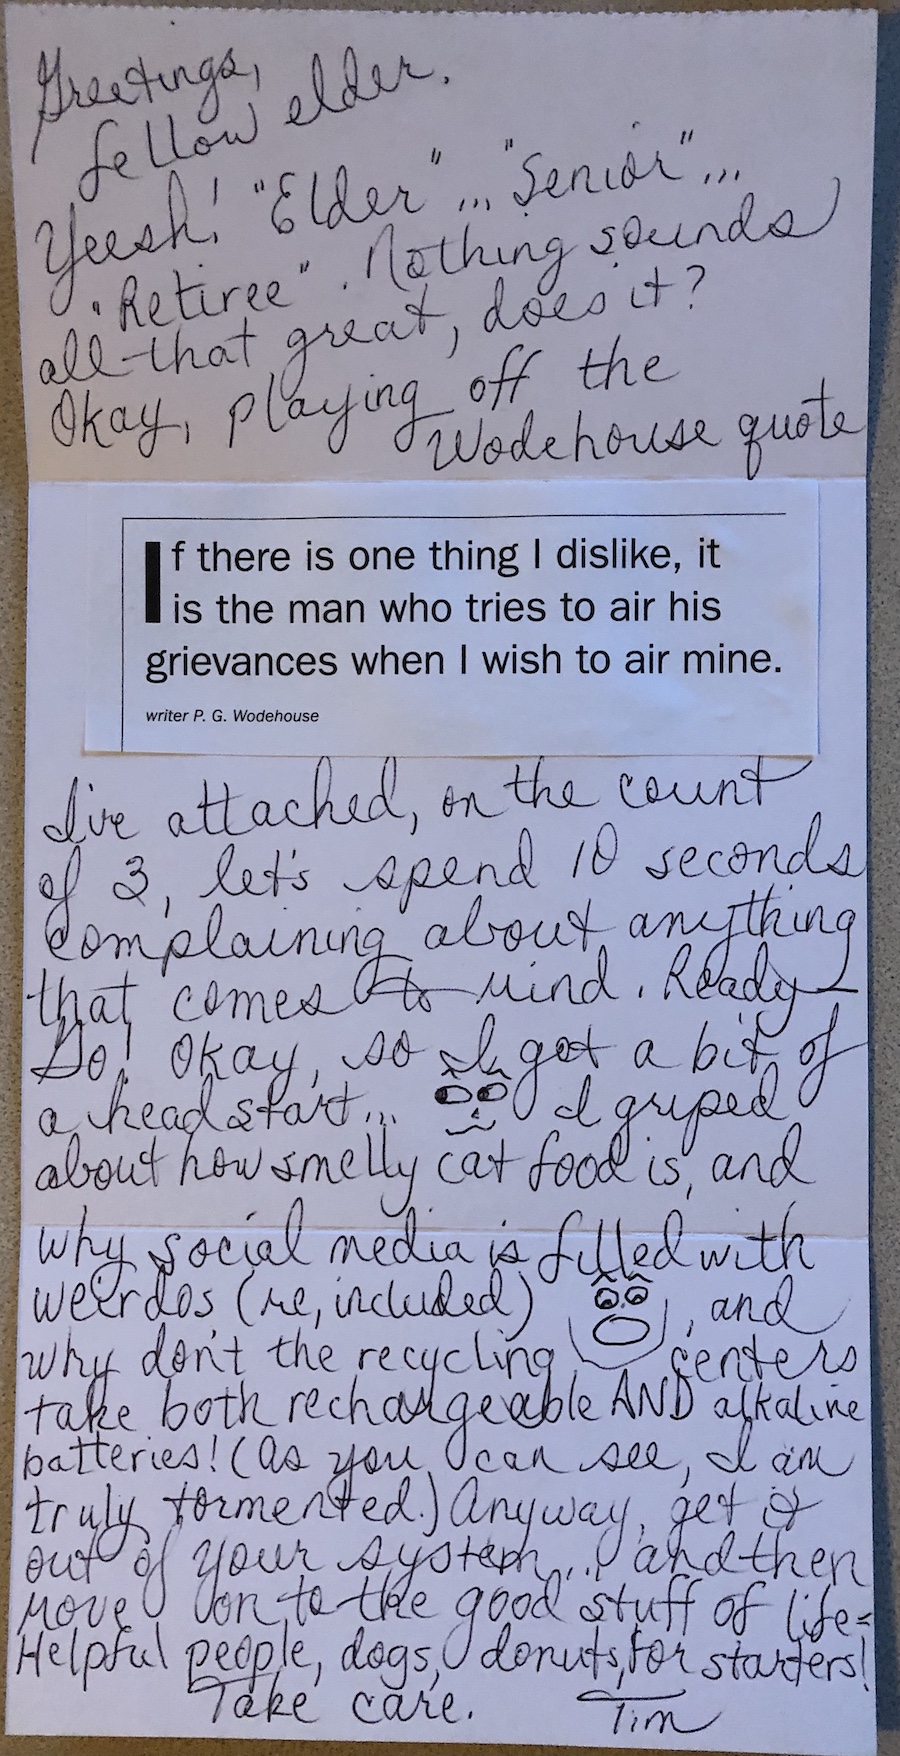 Greetings,
fellow elder.
Yeesh! "Elder"... "Senior"...
"Retiree". Nothing sounds
all that great, does it?
Okay, playing off the
Wodehouse quote
If there is one thing I dislike, it
is the man who tries to air his
grievances when I wish to air mine.
writer P. G. Wodehouse
I've attached, on the count
of 3, let's spend 10 seconds
complaining about anything
that comes to mind. Ready
Go! Okay, so I got a bit of
a head start... I griped
about how smelly cat food is, and
why social media is filled with
weirdos (me, included), and
why don't the recycling centers
take both rechargeable AND alkaline
batteries! (As you can see, I am
truly tormented.) Anyway, get it
out of your system... and then
move on to the good stuff of life-
Helpful people, dogs, donuts, for starters!
Take care. Tim